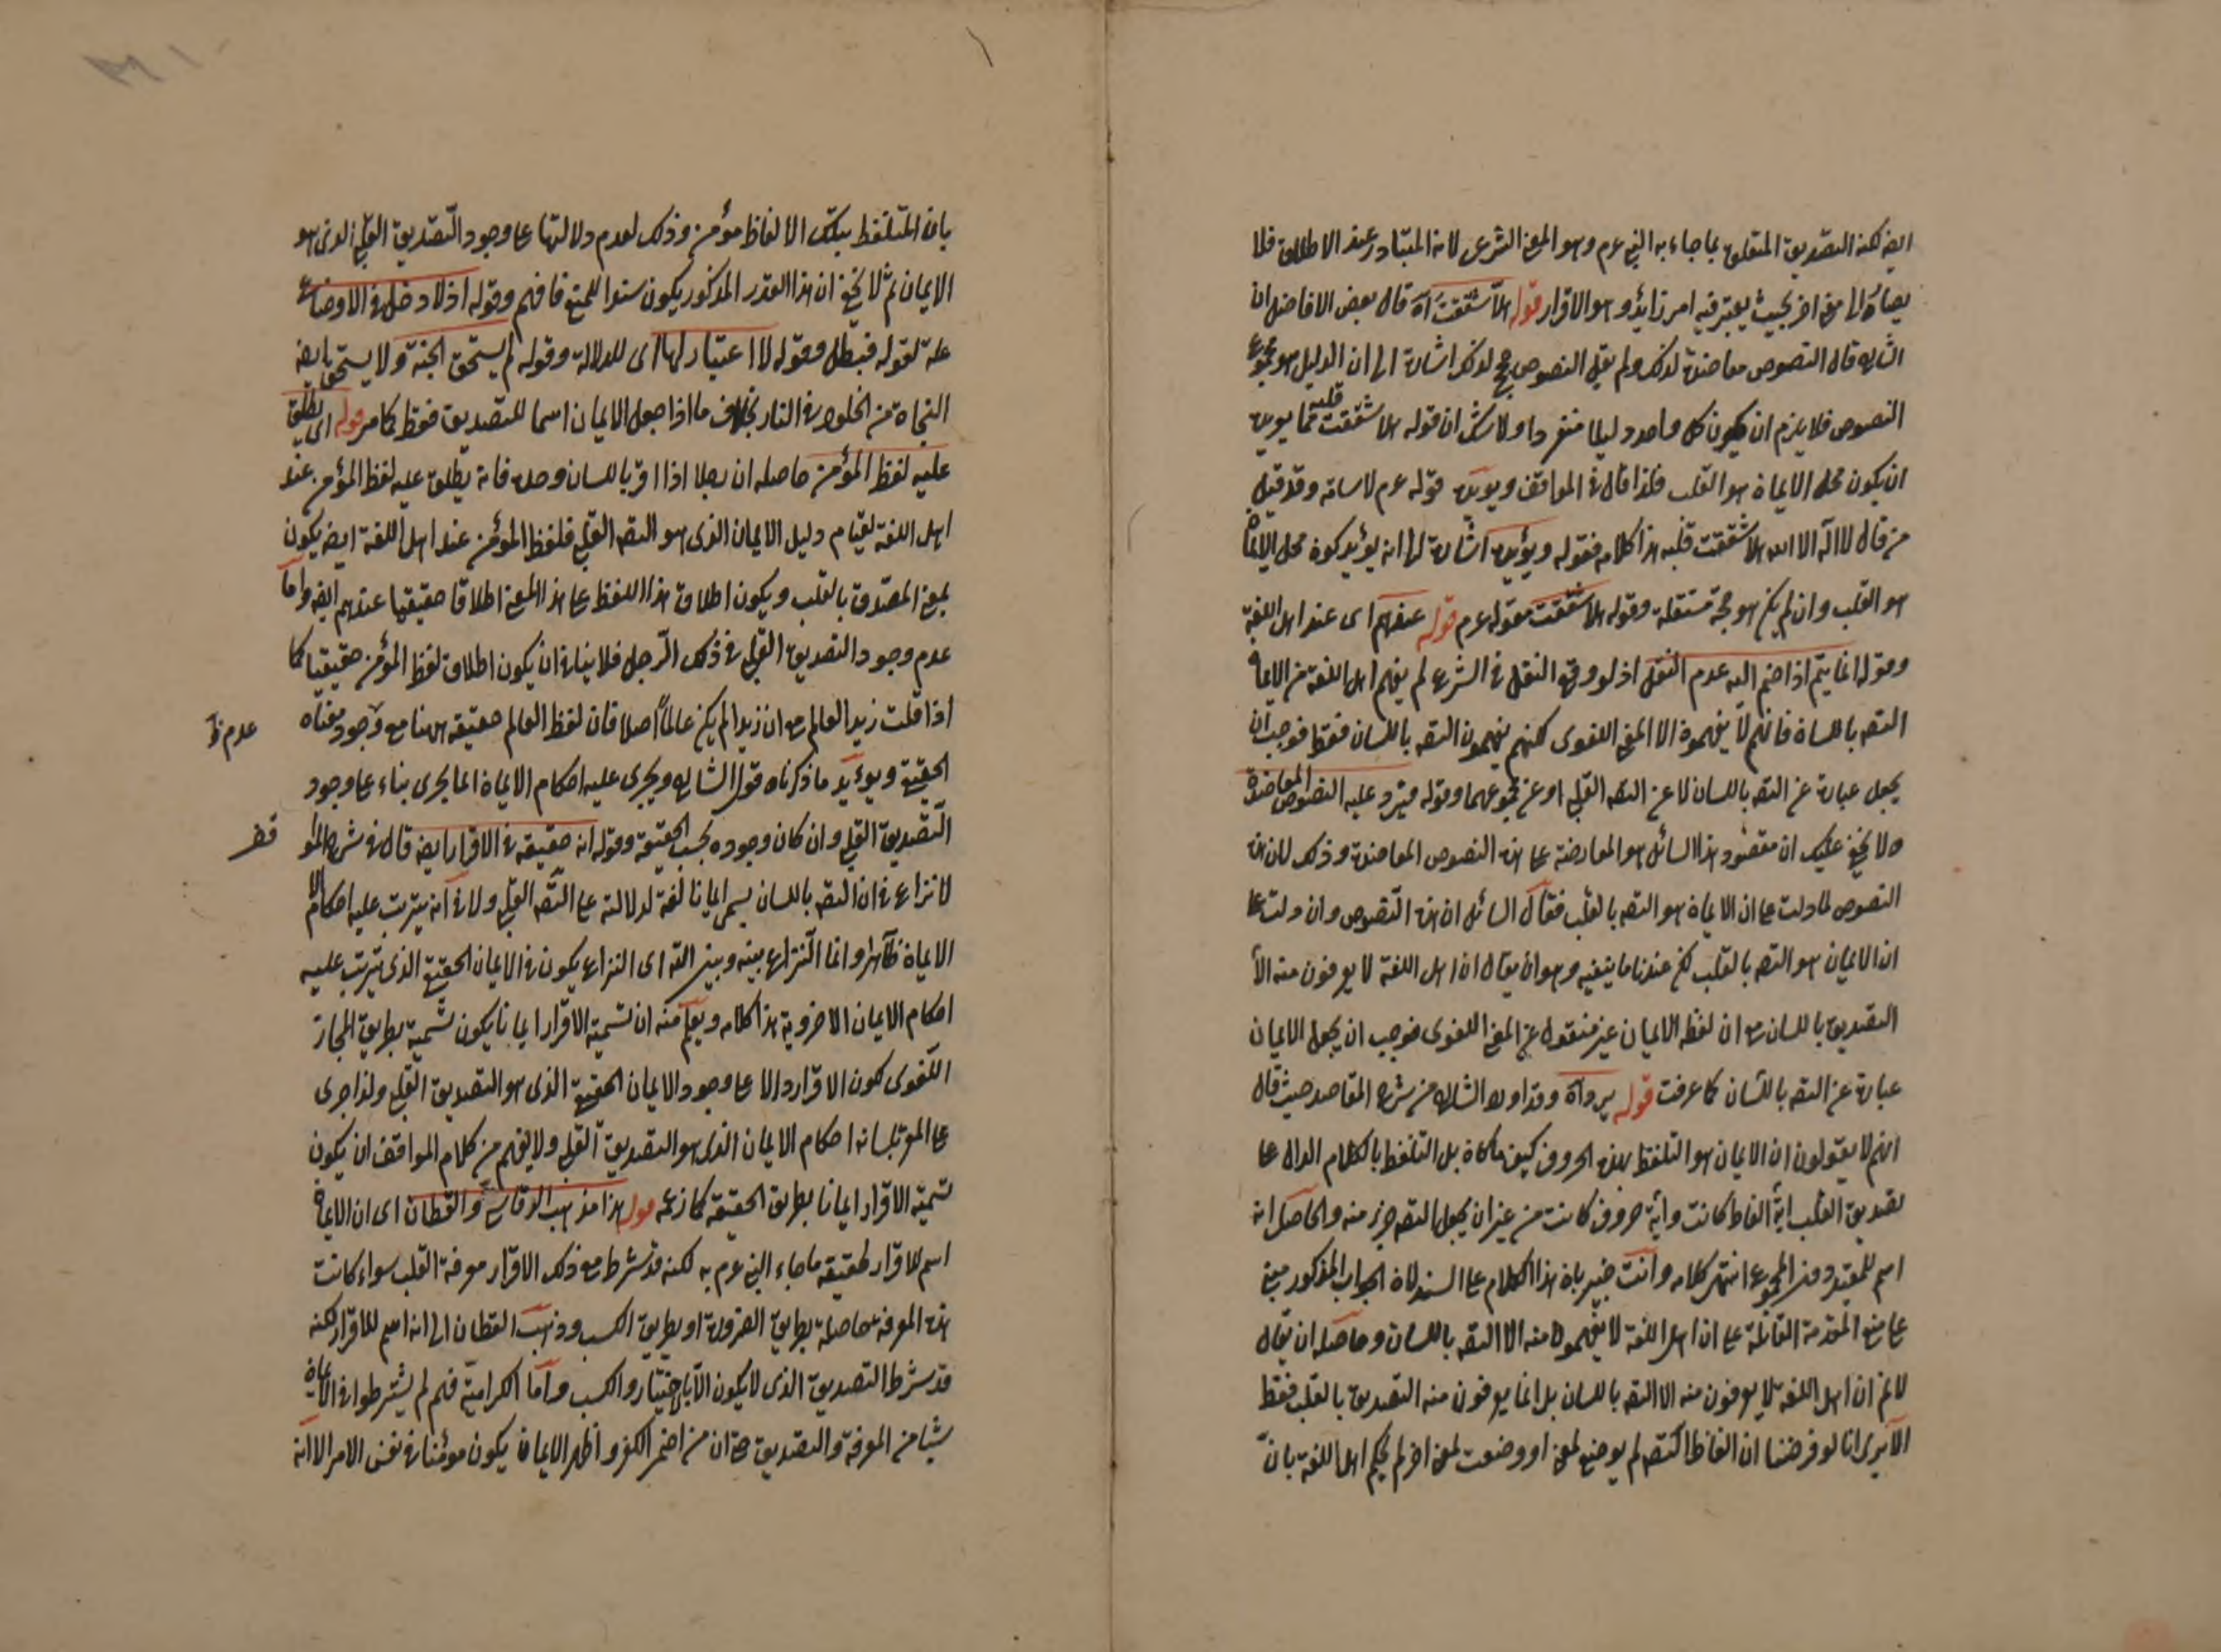 ايضا لكنه التصديق المتعلق بما جاء به النبي عم وهو المعنى الشرعي لانه المتبادر عند الاطلاق فلا
يصار الى معنى اخر بحيث يعتبر فيه امر زايد وهو الاقرار قوله هلا شققت آه قال بعض الافاضل ان
الشارح قال النصوص معاضدة لذلك ولم يقل النصوص حجج لذلك اشارة الى ان الدليل هو مجموع
النصوص فلا يلزم ان يكون كل واحد دليلا منفردا ولا شك ان قوله هلا شققت قلبه مما يؤيد
ان يكون محل الايمان هو القلب فلذا قال في المواقف ويؤيده قوله عم لاسامة وقد قتل
من قال لا اله الا الله هلا شققت قلبه هذا كلامه فقوله ويؤيده اشارة الى انه يؤيد كون محل الايمان
هو القلب وان لم يكن هو حجة مستقلة وقوله هلا شققت مقوله عم قوله عندهم اى عند اهل اللغة
وقوله انما يتم اذا ضم اليه عدم النقل اذ لو وقع النقل في الشرع لم يفهم اهل اللغة من الايمان
التصـ باللسان فانهم لا يفهمون الا المعنى اللغوى لكنهم يفهمون التصـ باللسان فقط فوجب ان
يجعل عبارة عن التصـ باللسان لا عن التصـ القلبي او عن مجموعهما وقوله فيرد عليه النصوص المعاضدة
ولا يخفى عليك ان مقصود هذا السائل هو المعارضة على هذه النصوص المعاضدة وذلك لان هذه
النصوص لما دلت على ان الايمان هو التصـ بالقلب فقال السائل ان هذه النصوص وان دلت على
ان الايمان هو التصـ بالقلب لكن عندنا ما ينفيه وهو ان يقال ان اهل اللغة لا يعرفون منه الا
التصديق باللسان مع ان لفظ الايمان غير منقول عن المعنى اللغوى فوجب ان يجعل الايمان
عبارة عن التصـ باللسان كما عرفت قوله يرد آه وقد اورد الشارح من شرح المقاصد حيث قال
انهم لا يقولون ان الايمان هو التلفظ بهذه الحروف كيف ما كان بل التلفظ بالكلام الدال على
تصديق القلب اية الفاظ كانت واية حروف كانت من غير ان يجعل التصـ جزء منه والحاصل انه
اسم للمقيد دون المجموع انتهى كلامه وانت خبير بان هذا الكلام على السند لان الجواب المذكور مبني
على منع المقدمة القائلة على ان اهل اللغة لا يفهمون منه الا التصـ باللسان وحاصله ان يقال
لا نم ان اهل اللغة لا يعرفون منه الا التصـ باللسان بل انما يعرفون منه التصديق بالقلب فقط
الا يرى انا لو فرضنا ان الفاظ التصـ لم يوضع لمعنى او وضعت لمعنى اخر لم يحكم اهل اللغة بان
بان المتلفظ بتلك الالفاظ مؤمن وذلك لعدم دلالتها على وجود التصديق القلبي الذى هو
الايمان ثم لا يخفى ان هذا القدر المذكور يكون سندا للمنع فافهم وقوله اذ لا دخل في الاوضاع
علة لقوله فبطل وقوله لا اعتبار لها اى للدلالة وقوله لم يستحق الجنة ولا يستحق ايضا
النجاة من الخلود في النار بخلاف ما اذا جعل الايمان اسما للتصديق فقط كما مر قوله اى يطلق
عليه لفظ المؤمن حاصله ان رجلا اذا اقر باللسان وحده فانه يطلق عليه لفظ المؤمن عند
اهل اللغة لقيام دليل الايمان الذى هو التصـ القلبي فلفظ المؤمن عند اهل اللغة ايضا يكون
بمعنى المصدق بالقلب ويكون اطلاق هذا اللفظ على هذا المعنى اطلاقا حقيقيا عندهم ايضا واما
عدم وجود التصديق القلبي في ذلك الرجل فلا ينافي ان يكون اطلاق لفظ المؤمن حقيقيا كما
اذا قلت زيد العالم مع ان زيدا لم يكن عالما اصلا فان لفظ العالم حقيقة هنا مع وجود معناه
عدم
الحقيقي ويؤيد ما ذكرناه قول الشارح ويجرى عليه احكام الايمان انما يجرى بناء على وجود
التصديق القلبي وان كان وجوده بحسب الحقيقة وقوله انه حقيقة في الاقرار ايضا قال في شرح المواقف
لا نزاع في ان التصـ باللسان يسمى ايمانا لغة لدلالته على التصـ القلبي ولا في انه يترتب عليه احكام
الايمان ظاهرا وانما النزاع بينه وبين الله اى النزاع يكون في الايمان الحقيقي الذى يترتب عليه
احكام الايمان الاخروية هذا كلامه ويعلم منه ان تسمية الاقرار ايمانا يكون تسمية بطريق المجاز
اللغوى لكون الاقرار دالا على وجود الايمان الحقيقي الذى هو التصديق القلبي ولذا جرى
على المقر بلسانه احكام الايمان الذى هو التصديق القلبي ولا يفهم من كلام المواقف ان يكون
تسمية الاقرار ايمانا بطريق الحقيقة كما زعمه قوله هذا مذهب الرقاشي والقطان اى ان الايمان
اسم للاقرار لحقيقة ما جاء النبي عم به لكنه قد شرط مع ذلك الاقرار معرفة القلب سواء كانت
هذه المعرفة حاصلة بطريق الضرورة او بطريق الكسب وذهب القطان الى انه اسم للاقرار لكنه
قد شرط التصديق الذى لا يكون الا بالاختيار والكسب واما الكرامية فهم لم يشترطوا في الايمان
شيئا من المعرفة والتصديق حتى ان من اضمر الكفر واظهر الايمان يكون مؤمنا في نفس الامر الا انه